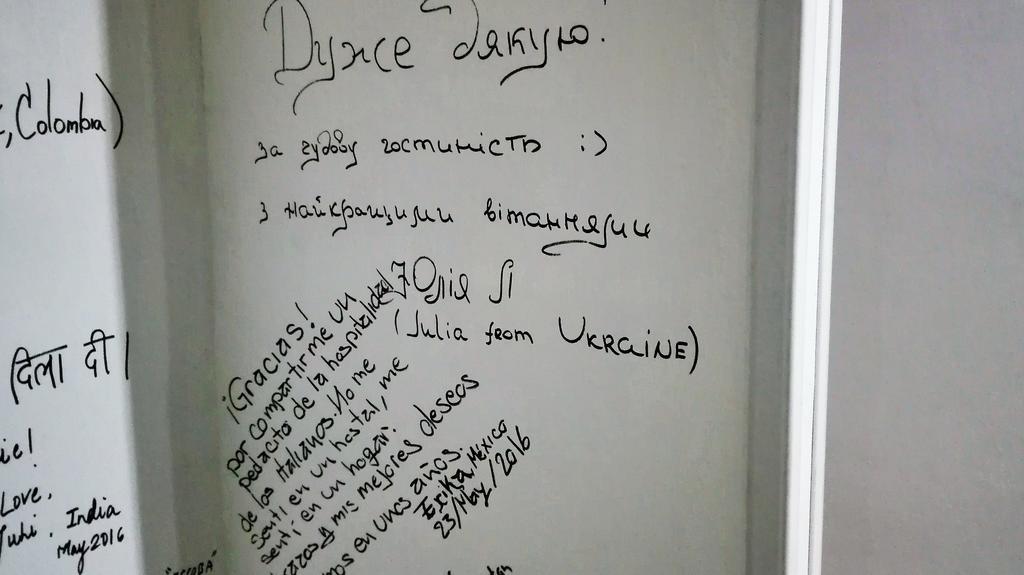 Дуже дякую!
за чудову гостиність :)
з найкращими вітаннями
Юлія Л
(Julia from UKRAINE)
, Colombia)
दिला दी।
Love,
India
May 2016
¡Gracias!
por compartirme un
pedacito de la hospitalidad
de los italianos. No me
sentí en un hostal, me
sentí en un hogar.
y mis mejores deseos
en unos años.
Erika, MÉXICO
23/May/2016